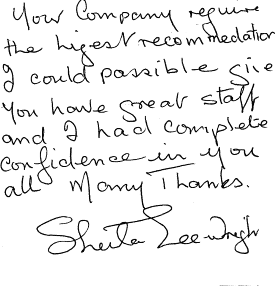 Your Company require
the higest recommedation
I could possible give
You have great staff
and I had complete
confidence in you
all Many Thanks.
Sheila Lee-Wright